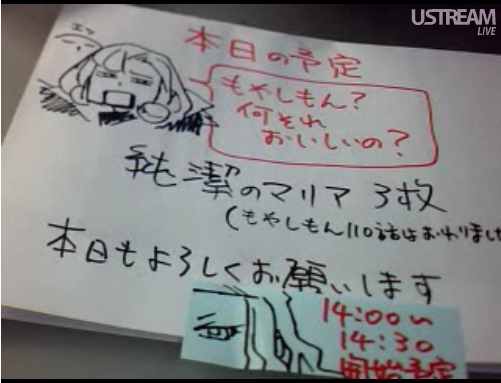 USTREAM
LIVE
エっ
本日の予定
もやしもん?
何それ
おいしいの?
純潔のマリア 3枚
(もやしもん110話はおわりました
本日もよろしくお願いします
14:00~
14:30
開始予定